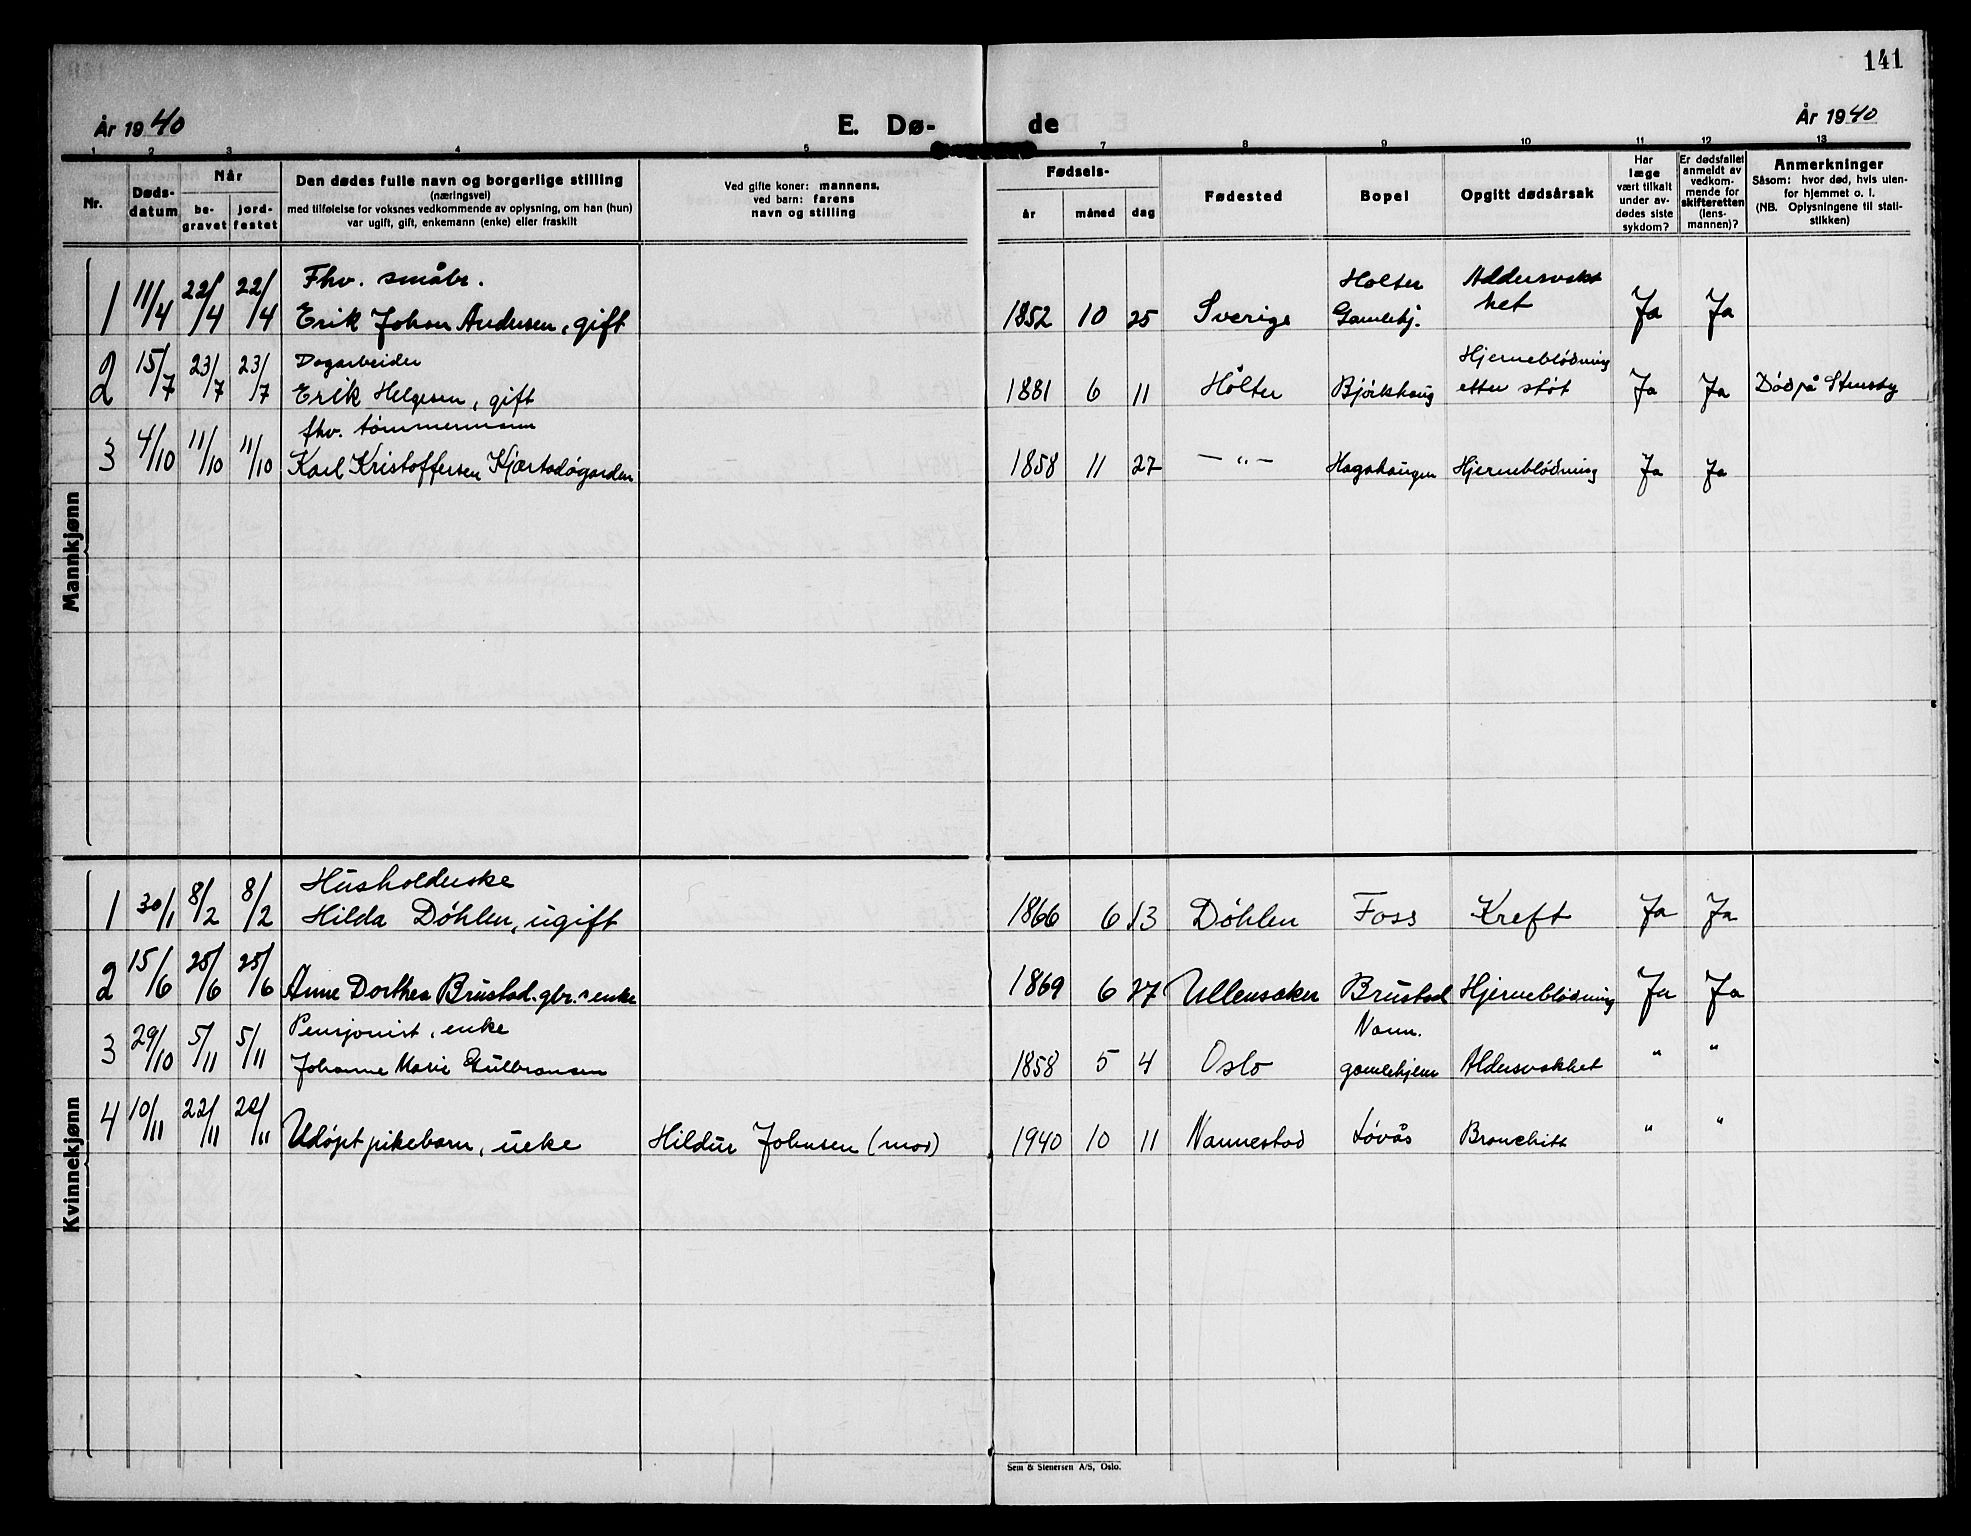 141
År 1940 E. Dø- de År 1940
1 2 3 4 5 7 8 9 10 11 12 13
Nr.
Døds-
datum
Når
be-
gravet
jord-
festet
Den dødes fulle navn og borgerlige stilling
(næringsvei)
med tilføielse for voksnes vedkommende av oplysning, om han (hun)
var ugift, gift, enkemann (enke) eller fraskilt
Ved gifte koner: mannens,
ved barn: farens
navn og stilling
Fødsels-
år måned dag
Fødested
Bopel
Opgitt dødsårsak
Har
læge
vært tilkalt
under av-
dødes siste
sykdom?
Er dødsfallet
anmeldt av
vedkom-
mende for
skifteretten
(lens-
mannen)?
Anmerkninger
Såsom: hvor død, hvis uten-
for hjemmet o. l.
(NB. Oplysningene til stati-
stikken)
Mannkjønn
Fhv. småbr. Holter Aldersvakk
1 11/4 22/4 22/4 Erik Johan Andersen, gift 1852 10 25 Sverige Gamlehj. het Ja Ja
Dagarbeider Hjerneblødning
2 15/7 23/7 23/7 Erik Helgesen, gift 1881 6 11 Holter Bjørkhaug etter støt Ja Ja Død på Stensby
fhv. tømmermann
3 4/10 11/10 11/10 Karl Kristoffersen 1858 11 27 — " — Hagahaugen Hjerneblødning Ja Ja
Kvinnekjønn
Husholderske
1 30/1 8/2 8/2 Hilda Døhlen, ugift 1866 6 13 Døhlen Foss Kreft Ja Ja
2 15/6 25/6 25/6 Anne Dorthea Brustad. gbr.'s enke 1869 6 27 Ullensaker Brustad Hjerneblødning Ja Ja
Pensjonist, enke Nann.
3 29/10 5/11 5/11 Johanne Marie Gulbransen 1858 5 4 Oslo gamlehjem Aldersvakhet " "
4 10/11 22/11 22/11 Udøpt pikebarn, uekte Hildur Johnsen (mor) 1940 10 11 Nannestad Løvås Bronchitt " "
Sem & Stenersen A/S, Oslo.